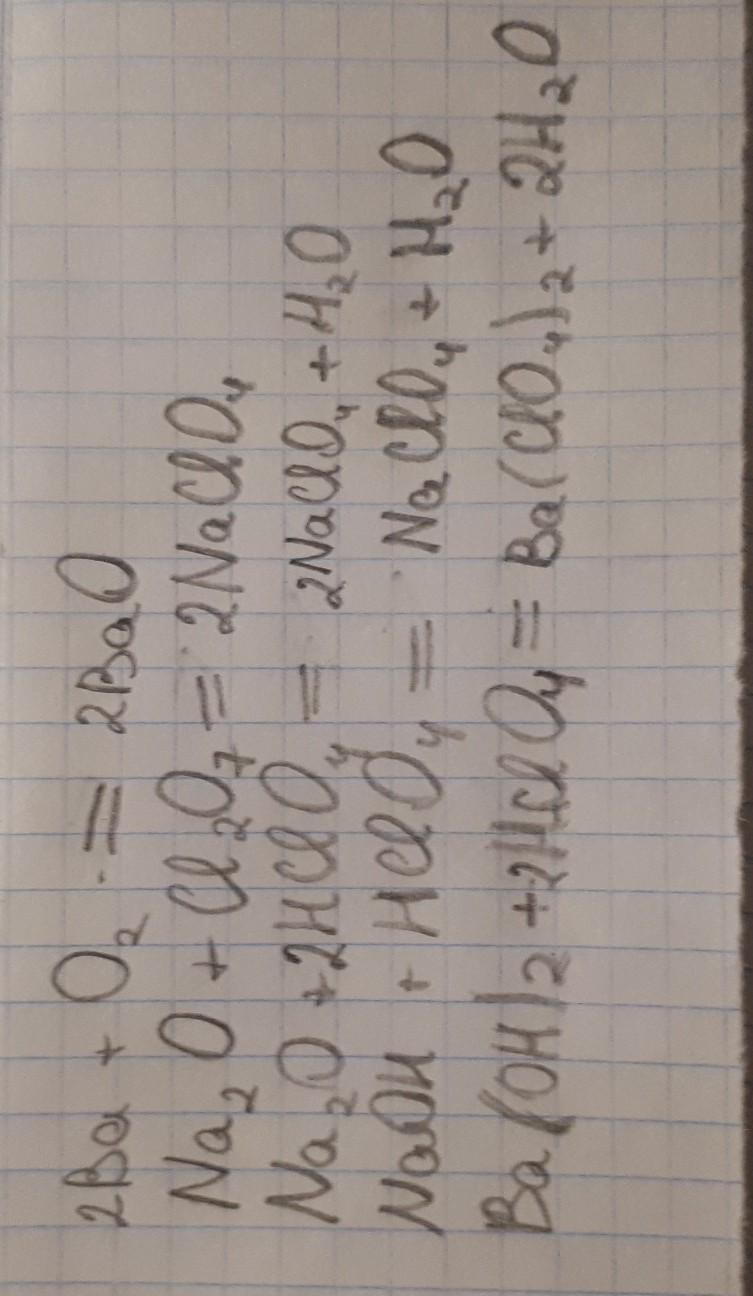 2Ba + O₂ = 2BaO
Na₂O + Cl₂O₇ = 2NaClO₄
Na₂O + 2HClO₄ = 2NaClO₄ + H₂O
NaOH + HClO₄ = NaClO₄ + H₂O
Ba(OH)₂ + 2HClO₄ = Ba(ClO₄)₂ + 2H₂O